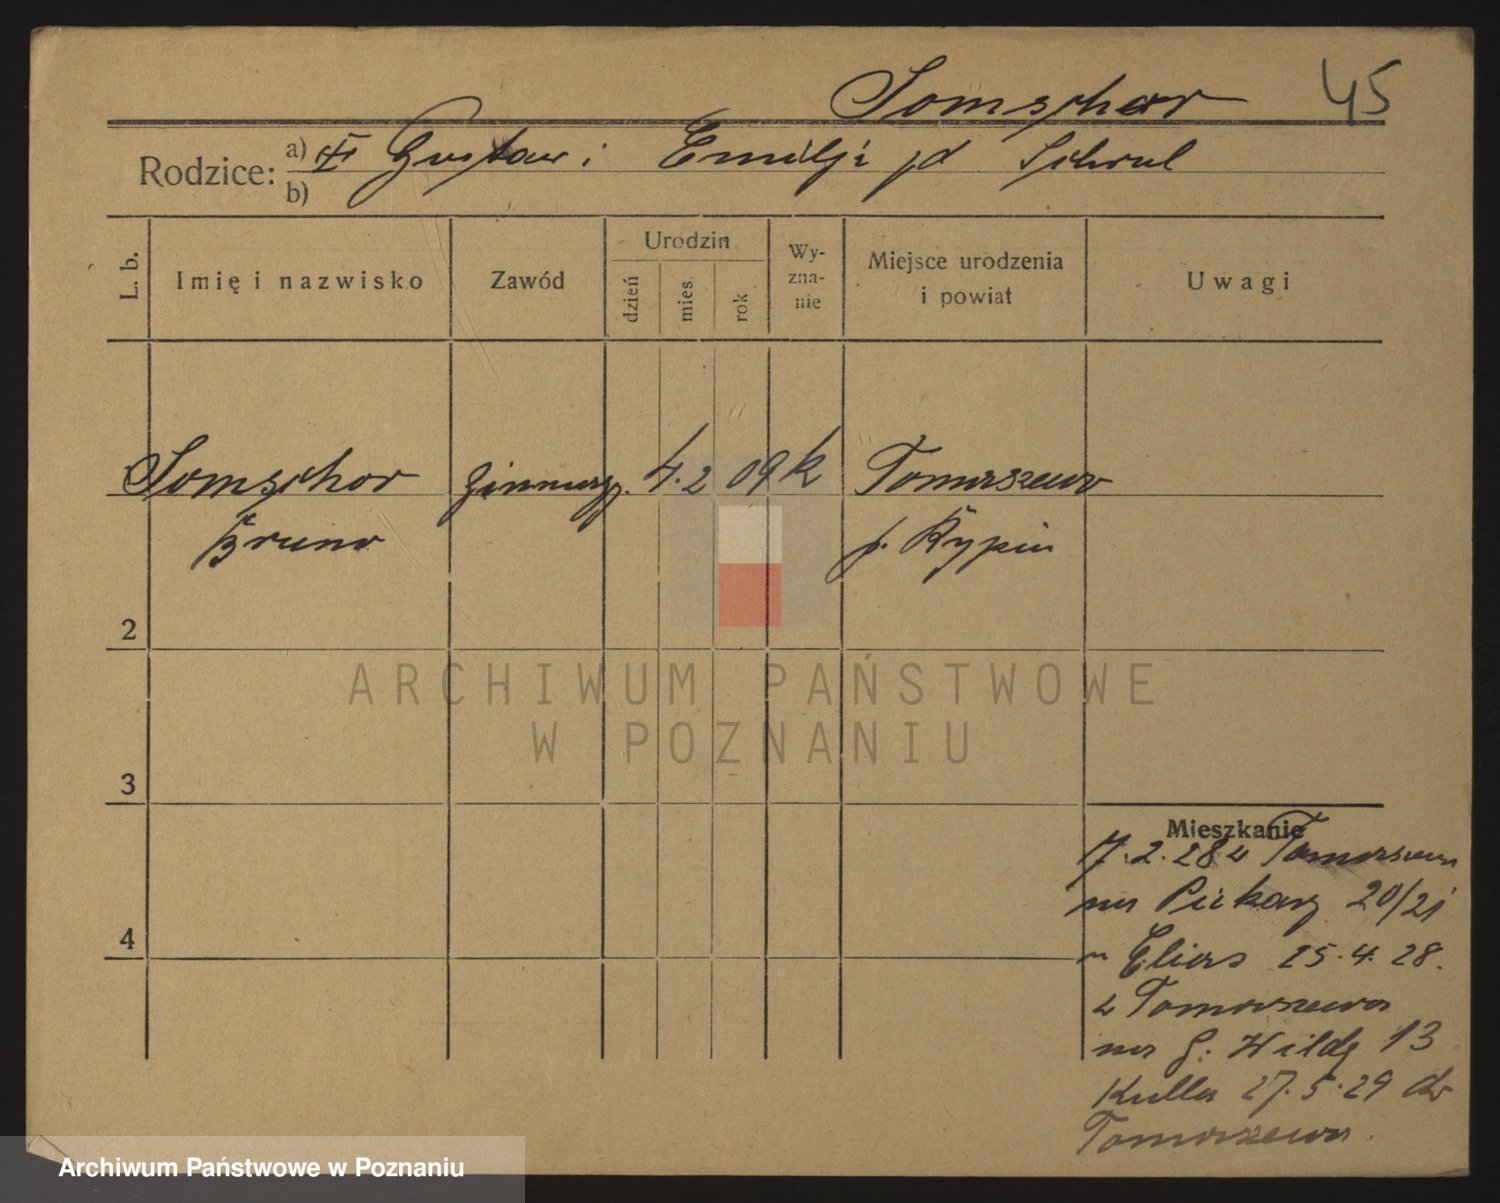 Somschor 45
Rodzice: a) Gustaw i Emilji
b)
L. b. Imię i nazwisko Zawód Urodzin. dzień mies. rok Wy-zna-nie Miejsce urodzenia i powiat Uwagi
Somschor 4. 2 09 k Tomaszewo
Bruno p. Rypin
2
3
4
Mieszkanie
7.2.28 z Tomaszewa
na Piekary 20/21
Elias 25.4.28.
z Tomaszewa
na G. Wildę 13
Kulla 27.5.29 do
Tomaszewa.
ARCHIWUM PAŃSTWOWE
W POZNANIU
Archiwum Państwowe w Poznaniu